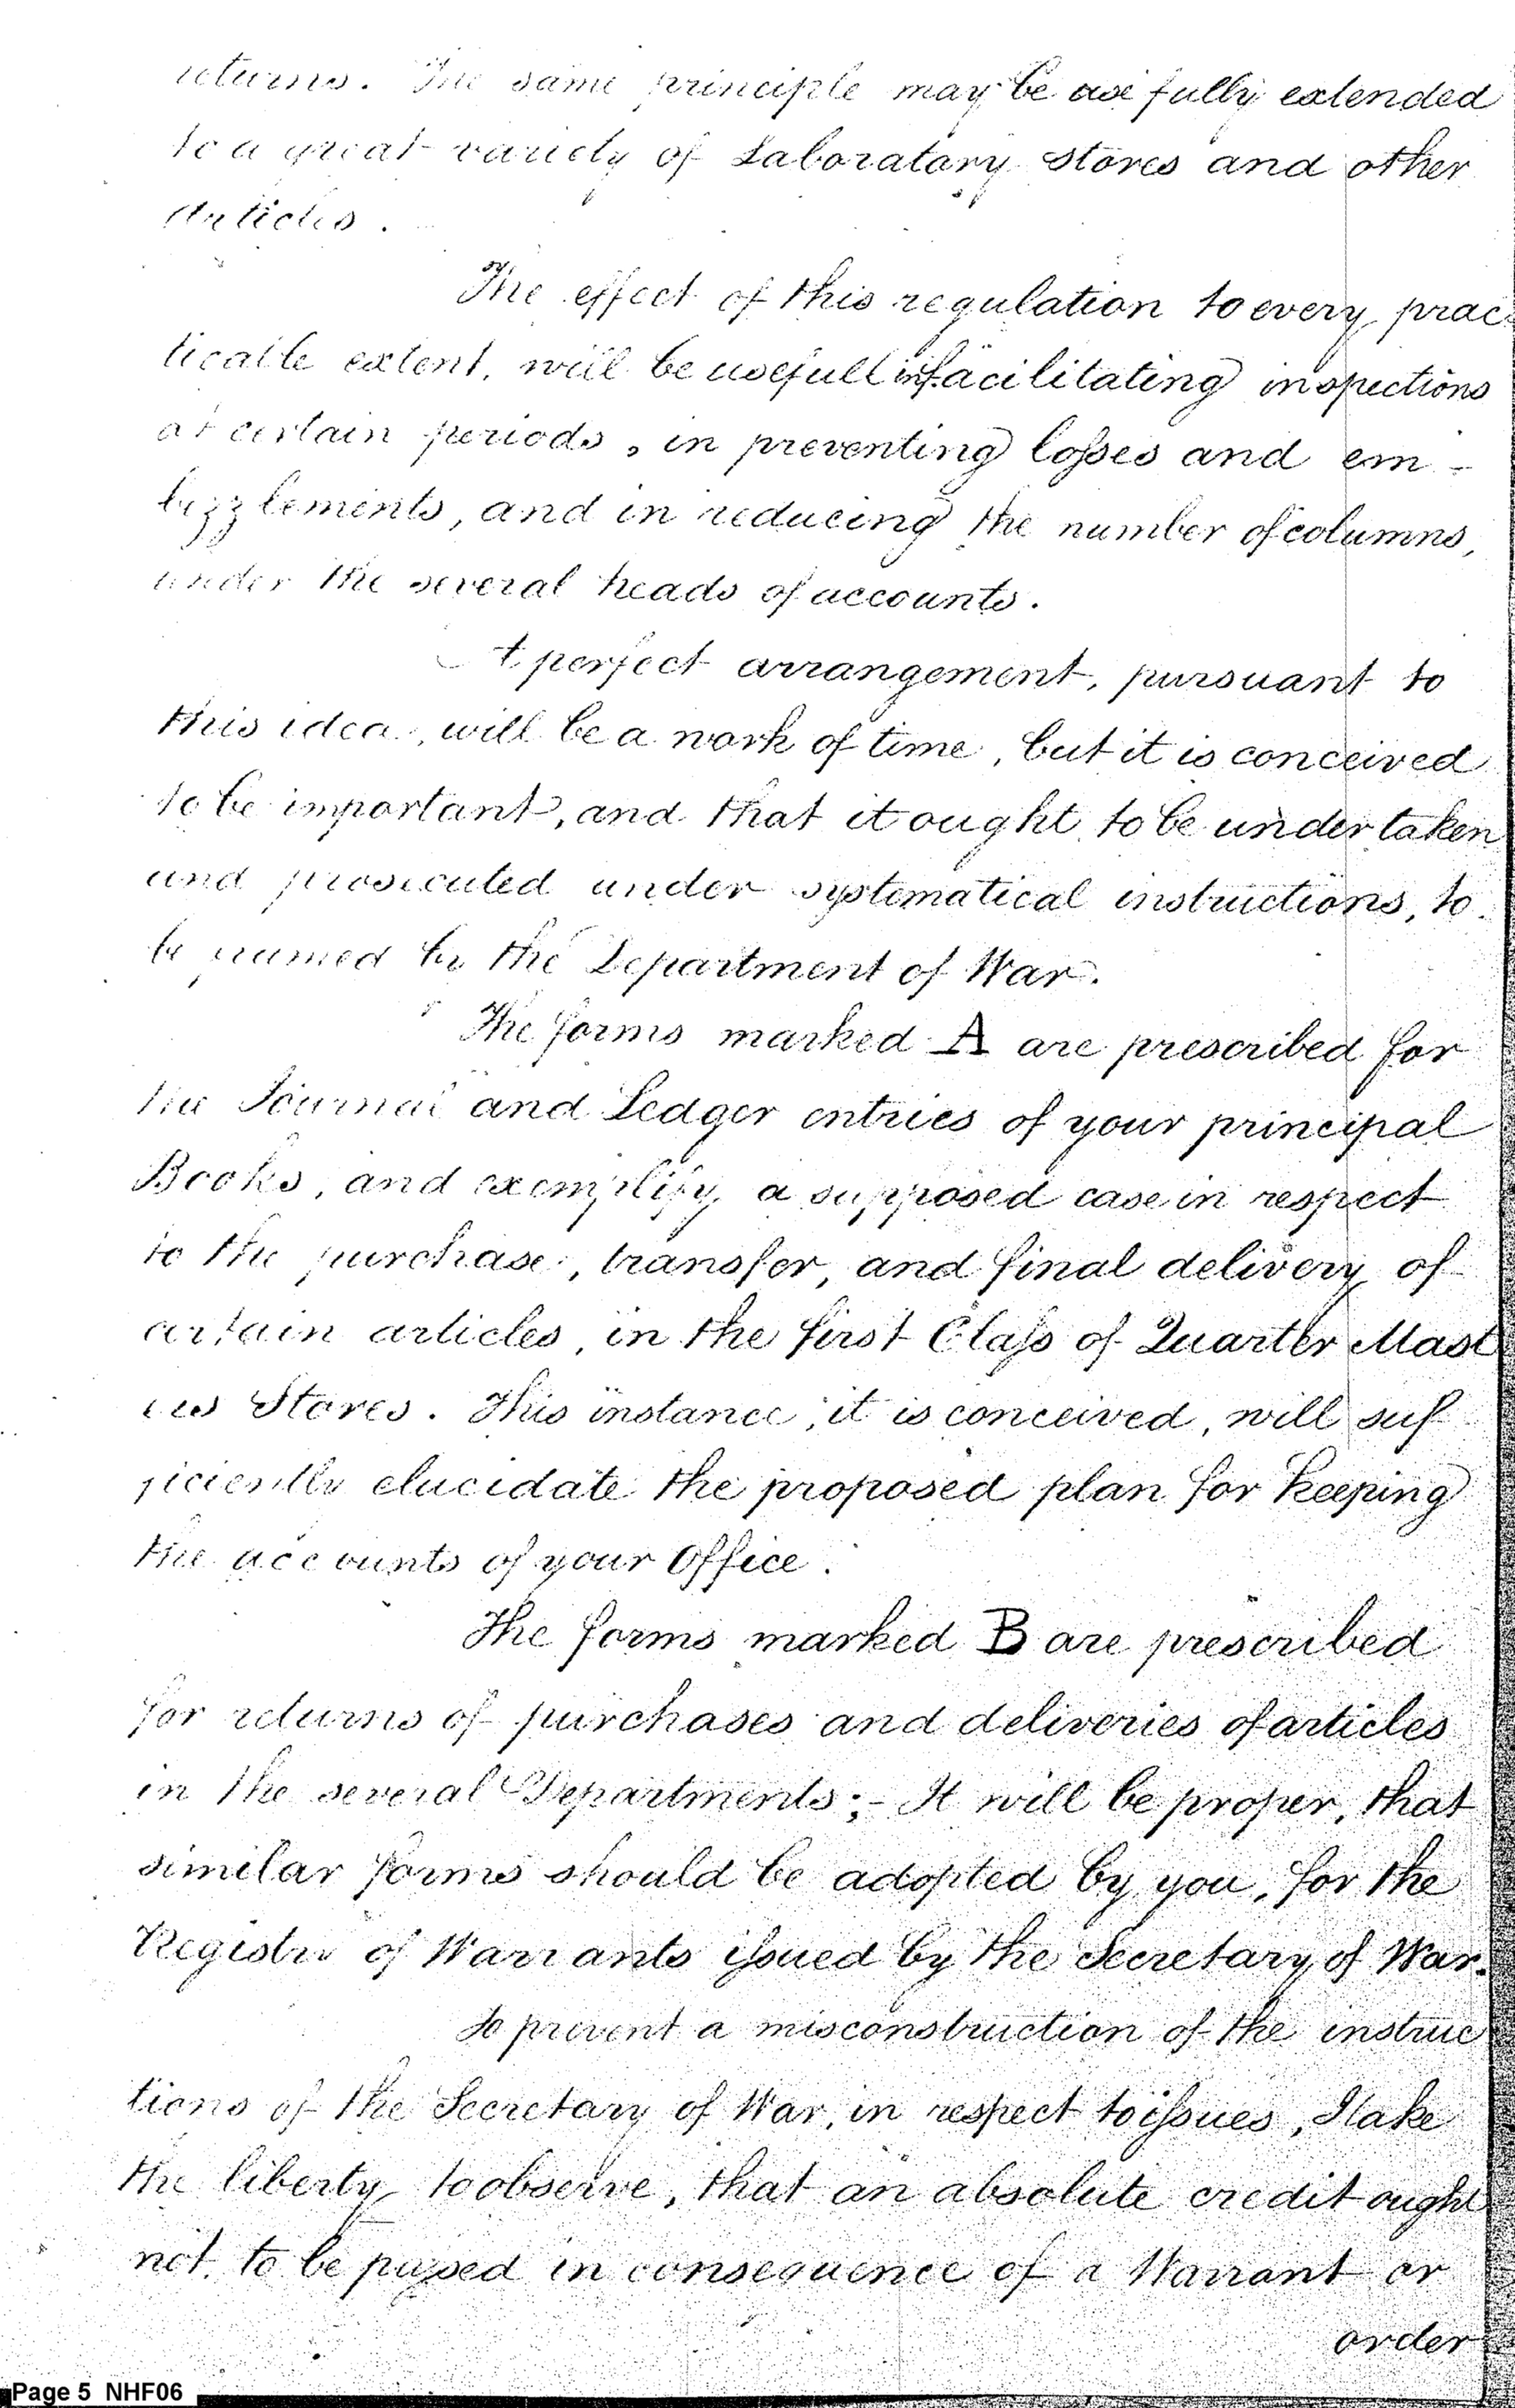 returns. The same principle may be usefully extended
to a great variety of Laboratary Stores and other
Articles.
The effect of this regulation to every prac
ticable extent, will be usefull in facilitating inspections
at certain periods, in preventing losses and em-
bezzlements, and in reducing the number of columns,
under the several heads of accounts.
A perfect arrangement, pursuant to
this idea, will be a work of time, but it is conceived
to be important, and that it ought to be undertaken
and prosecuted under systematical instructions, to
be framed by the Department of War.
The forms marked A are prescribed for
the Journal and Ledger entries of your principal
Books, and exemplify a supposed case in respect
to the purchase, transfer, and final delivery of
certain articles, in the first Class of Quarter Mast
ers Stores. This instance, it is conceived, will suf
ficiently elucidate the proposed plan for keeping
the accounts of your Office.
The forms marked B are prescribed
for returns of purchases and deliveries of articles
in the several Departments;- It will be proper, that
similar forms should be adopted by you, for the
Register of Warrants issued by the Secretary of War.
To prevent a misconstruction of the instruc
tions of the Secretary of War, in respect to issues, I take
the liberty to observe, that an absolute credit ought
not to be passed in consequence of a Warrant or
order
Page 5 NHF06